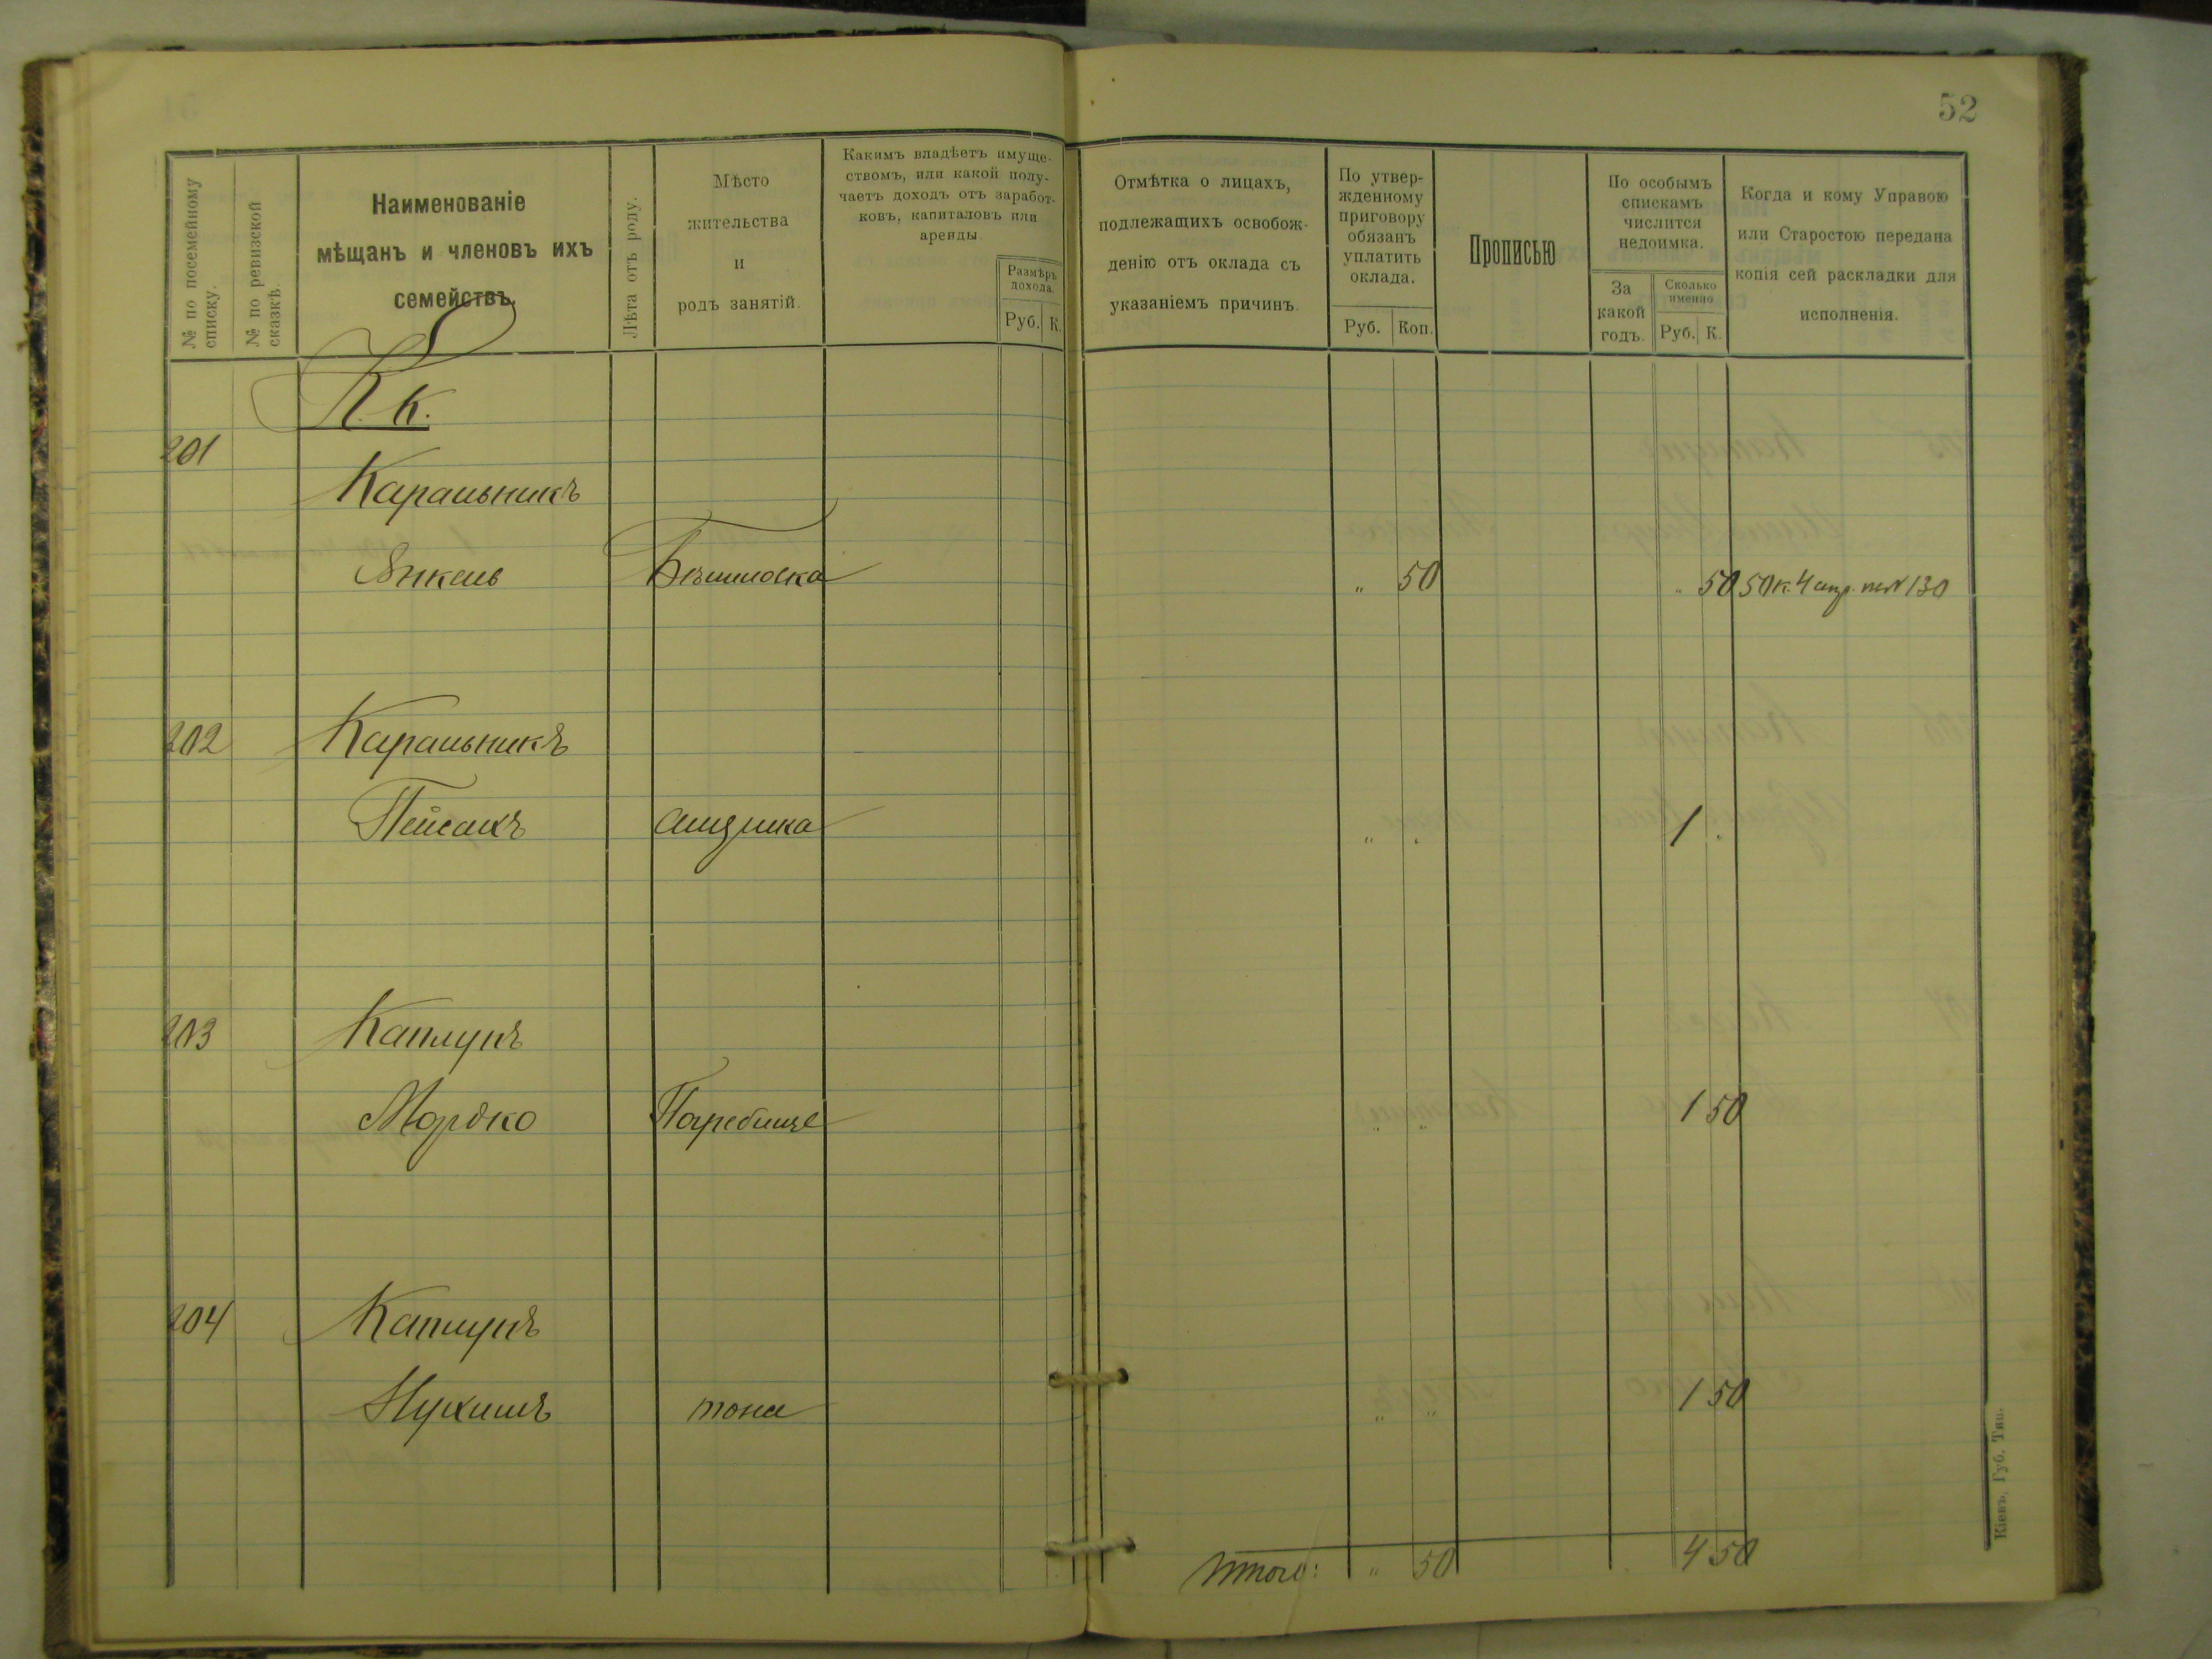 52
№ по посемейному списку.
№ по ревизской сказкѣ.
Наименованіе
мѣщанъ и членовъ ихъ
семействъ.
Лѣта отъ роду.
Мѣсто
жительства
и
родъ занятій.
Какимъ владѣетъ имуще-
ствомъ, или какой полу-
чаетъ доходъ отъ заработ-
ковъ, капиталовъ или
аренды.
Размѣръ
дохода.
Руб. К.
Отмѣтка о лицахъ,
подлежащихъ освобож-
денію отъ оклада съ
указаніемъ причинъ.
По утвер-
жденному
приговору
обязанъ
уплатить
оклада.
Руб. Коп.
Прописью
По особымъ
спискамъ
числится
недоимка.
За
какой
годъ.
Сколько
именно
Руб. К.
Когда и кому Управою
или Старостою передана
копія сей раскладки для
исполненія.
К. к.
201
Каральникъ
Янкель " 50 " 50 50 к. 4 апр. 130
202 Каральникъ
Пейсахъ " . 1 .
203 Каплунъ
Мордко Погребище " " 1 50
204 Каплунъ
Нухимъ " " 1 50
Итого: " 50 4 50
Кіевъ, Губ. Тип.